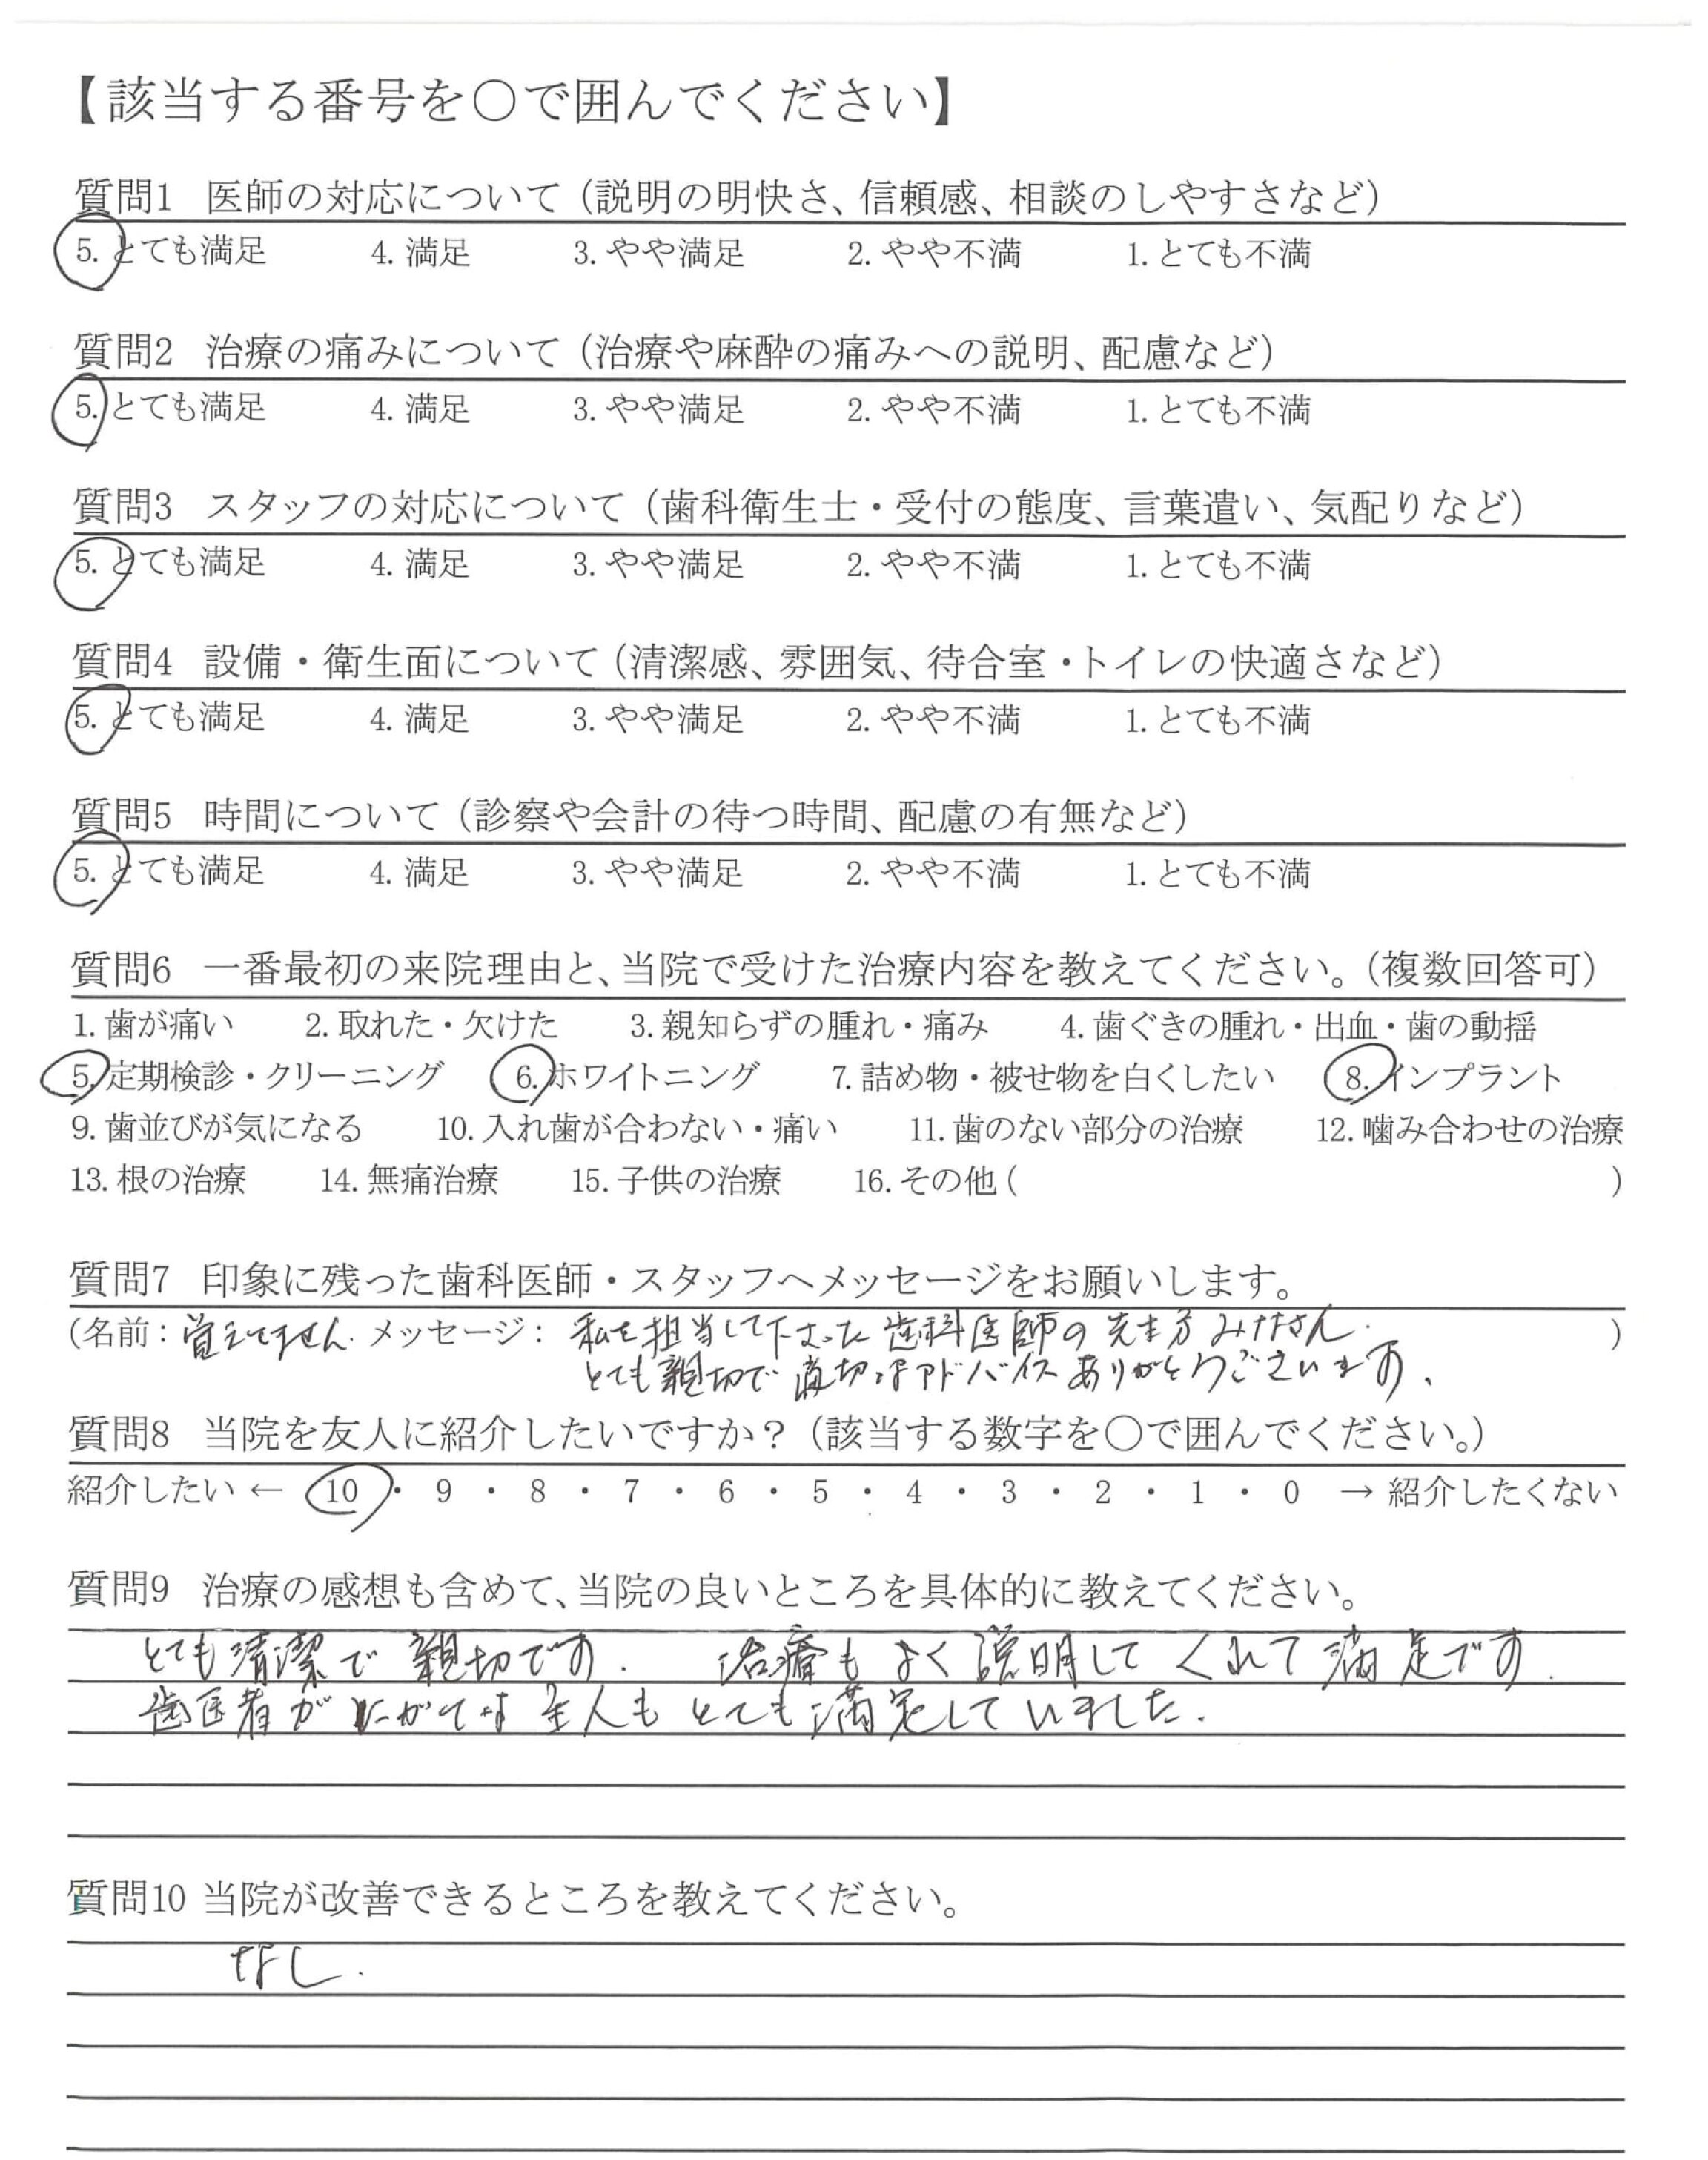 【該当する番号を〇で囲んでください】
質問1 医師の対応について（説明の明快さ、信頼感、相談のしやすさなど）
5. とても満足 4. 満足 3. やや満足 2. やや不満 1. とても不満
質問2 治療の痛みについて（治療や麻酔の痛みへの説明、配慮など）
5. とても満足 4. 満足 3. やや満足 2. やや不満 1. とても不満
質問3 スタッフの対応について（歯科衛生士・受付の態度、言葉遣い、気配りなど）
5. とても満足 4. 満足 3. やや満足 2. やや不満 1. とても不満
質問4 設備・衛生面について（清潔感、雰囲気、待合室・トイレの快適さなど）
5. とても満足 4. 満足 3. やや満足 2. やや不満 1. とても不満
質問5 時間について（診察や会計の待つ時間、配慮の有無など）
5. とても満足 4. 満足 3. やや満足 2. やや不満 1. とても不満
質問6 一番最初の来院理由と、当院で受けた治療内容を教えてください。（複数回答可）
1. 歯が痛い 2. 取れた・欠けた 3. 親知らずの腫れ・痛み 4. 歯ぐきの腫れ・出血・歯の動揺
5. 定期検診・クリーニング 6. ホワイトニング 7. 詰め物・被せ物を白くしたい 8. インプラント
9. 歯並びが気になる 10. 入れ歯が合わない・痛い 11. 歯のない部分の治療 12. 噛み合わせの治療
13. 根の治療 14. 無痛治療 15. 子供の治療 16. その他（ ）
質問7 印象に残った歯科医師・スタッフへメッセージをお願いします。
（名前：覚えてません. メッセージ： 私を担当して下さった 歯科医師の 先生方 みなさん. ）
とても親切で 適切なアドバイス ありがとうございます.
質問8 当院を友人に紹介したいですか？（該当する数字を〇で囲んでください。）
紹介したい ← 10 ・ 9 ・ 8 ・ 7 ・ 6 ・ 5 ・ 4 ・ 3 ・ 2 ・ 1 ・ 0 → 紹介したくない
質問9 治療の感想も含めて、当院の良いところを具体的に教えてください。
とても清潔で 親切です. 治療も よく 説明して くれて 満足です.
歯医者が にがてな 主人も とても満足して いました.
質問10 当院が改善できるところを教えてください。
なし.